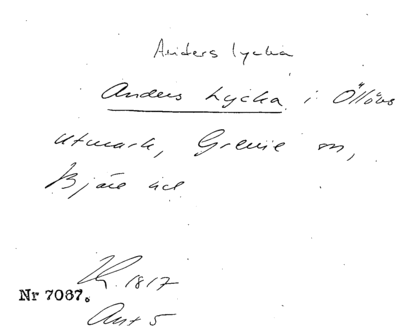 Anders lycka
Anders Lycka i Öllövs
utmark, Grevie sn,
Bjäre hd
1817
Nr 7067.
Ant 5